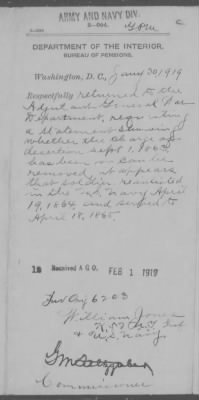 ARMY AND NAVY DIV.
DEPARTMENT OF THE INTERIOR,
BUREAU OF PENSIONS,
Washington, D.C., Jany 30, 1919
Respectfully returned to the
Adjutant General War
Department, requesting
a statement showing
whether the charge of
desertion Sept 1, 1863
has been or can be
removed, it appears
that soldier reenlisted
in the U.S. Navy April
19, 1864 and served to
April 18, 1865.
18 Received A G O. FEB 1 1919
Inv Org 6203
William Jones
& U.S. Navy
Commissioner